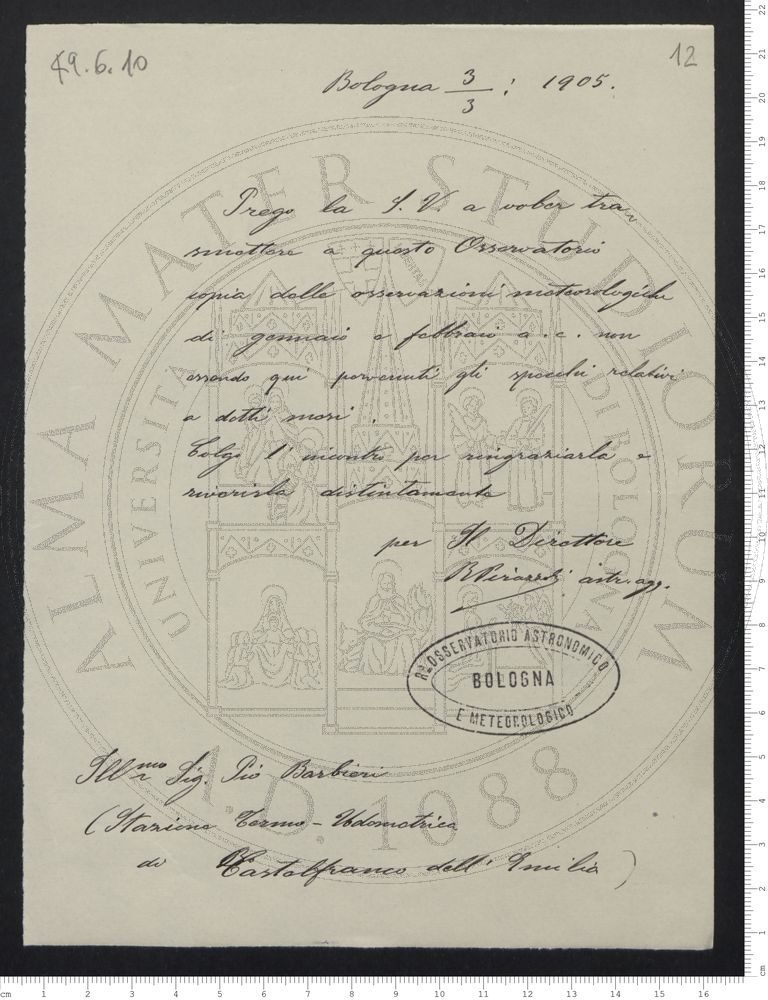 49.6.10
12
Bologna 3/3 : 1905.
Prego la S. V. a voler tra
smettere a questo Osservatorio
copia delle osservazioni meteorologiche
di gennaio e febbraio a. c. non
essendo qui pervenuti gli specchi relativi
a detti mesi.
Colgo l' incontro per ringraziarla e
riverirla distintamente
per Il Direttore
R Pirazzoli astr. agg.
Rº. OSSERVATORIO ASTRONOMICO
BOLOGNA
E METEOROLOGICO
Illmo Sig. Pio Barbieri
(Stazione Termo-Udometrica
di Castelfranco dell' Emilia)
ALMA MATER STUDIORUM
UNIVERSITA DI BOLOGNA
A.D. 1088